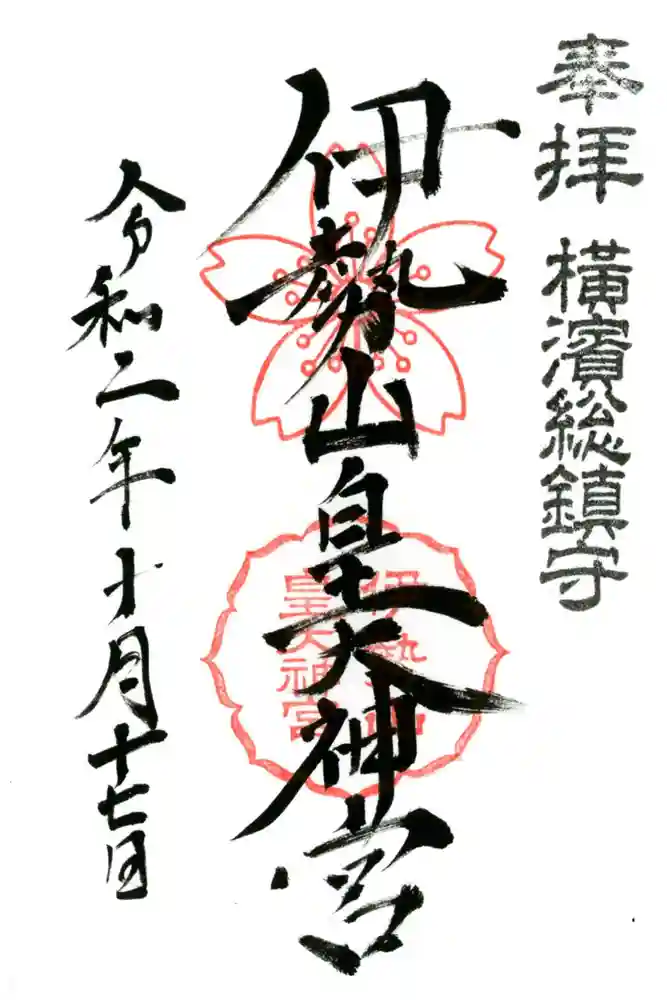 奉拝
横濱総鎮守
伊勢山皇大神宮
伊勢山
皇大神宮
令和二年十月十七日